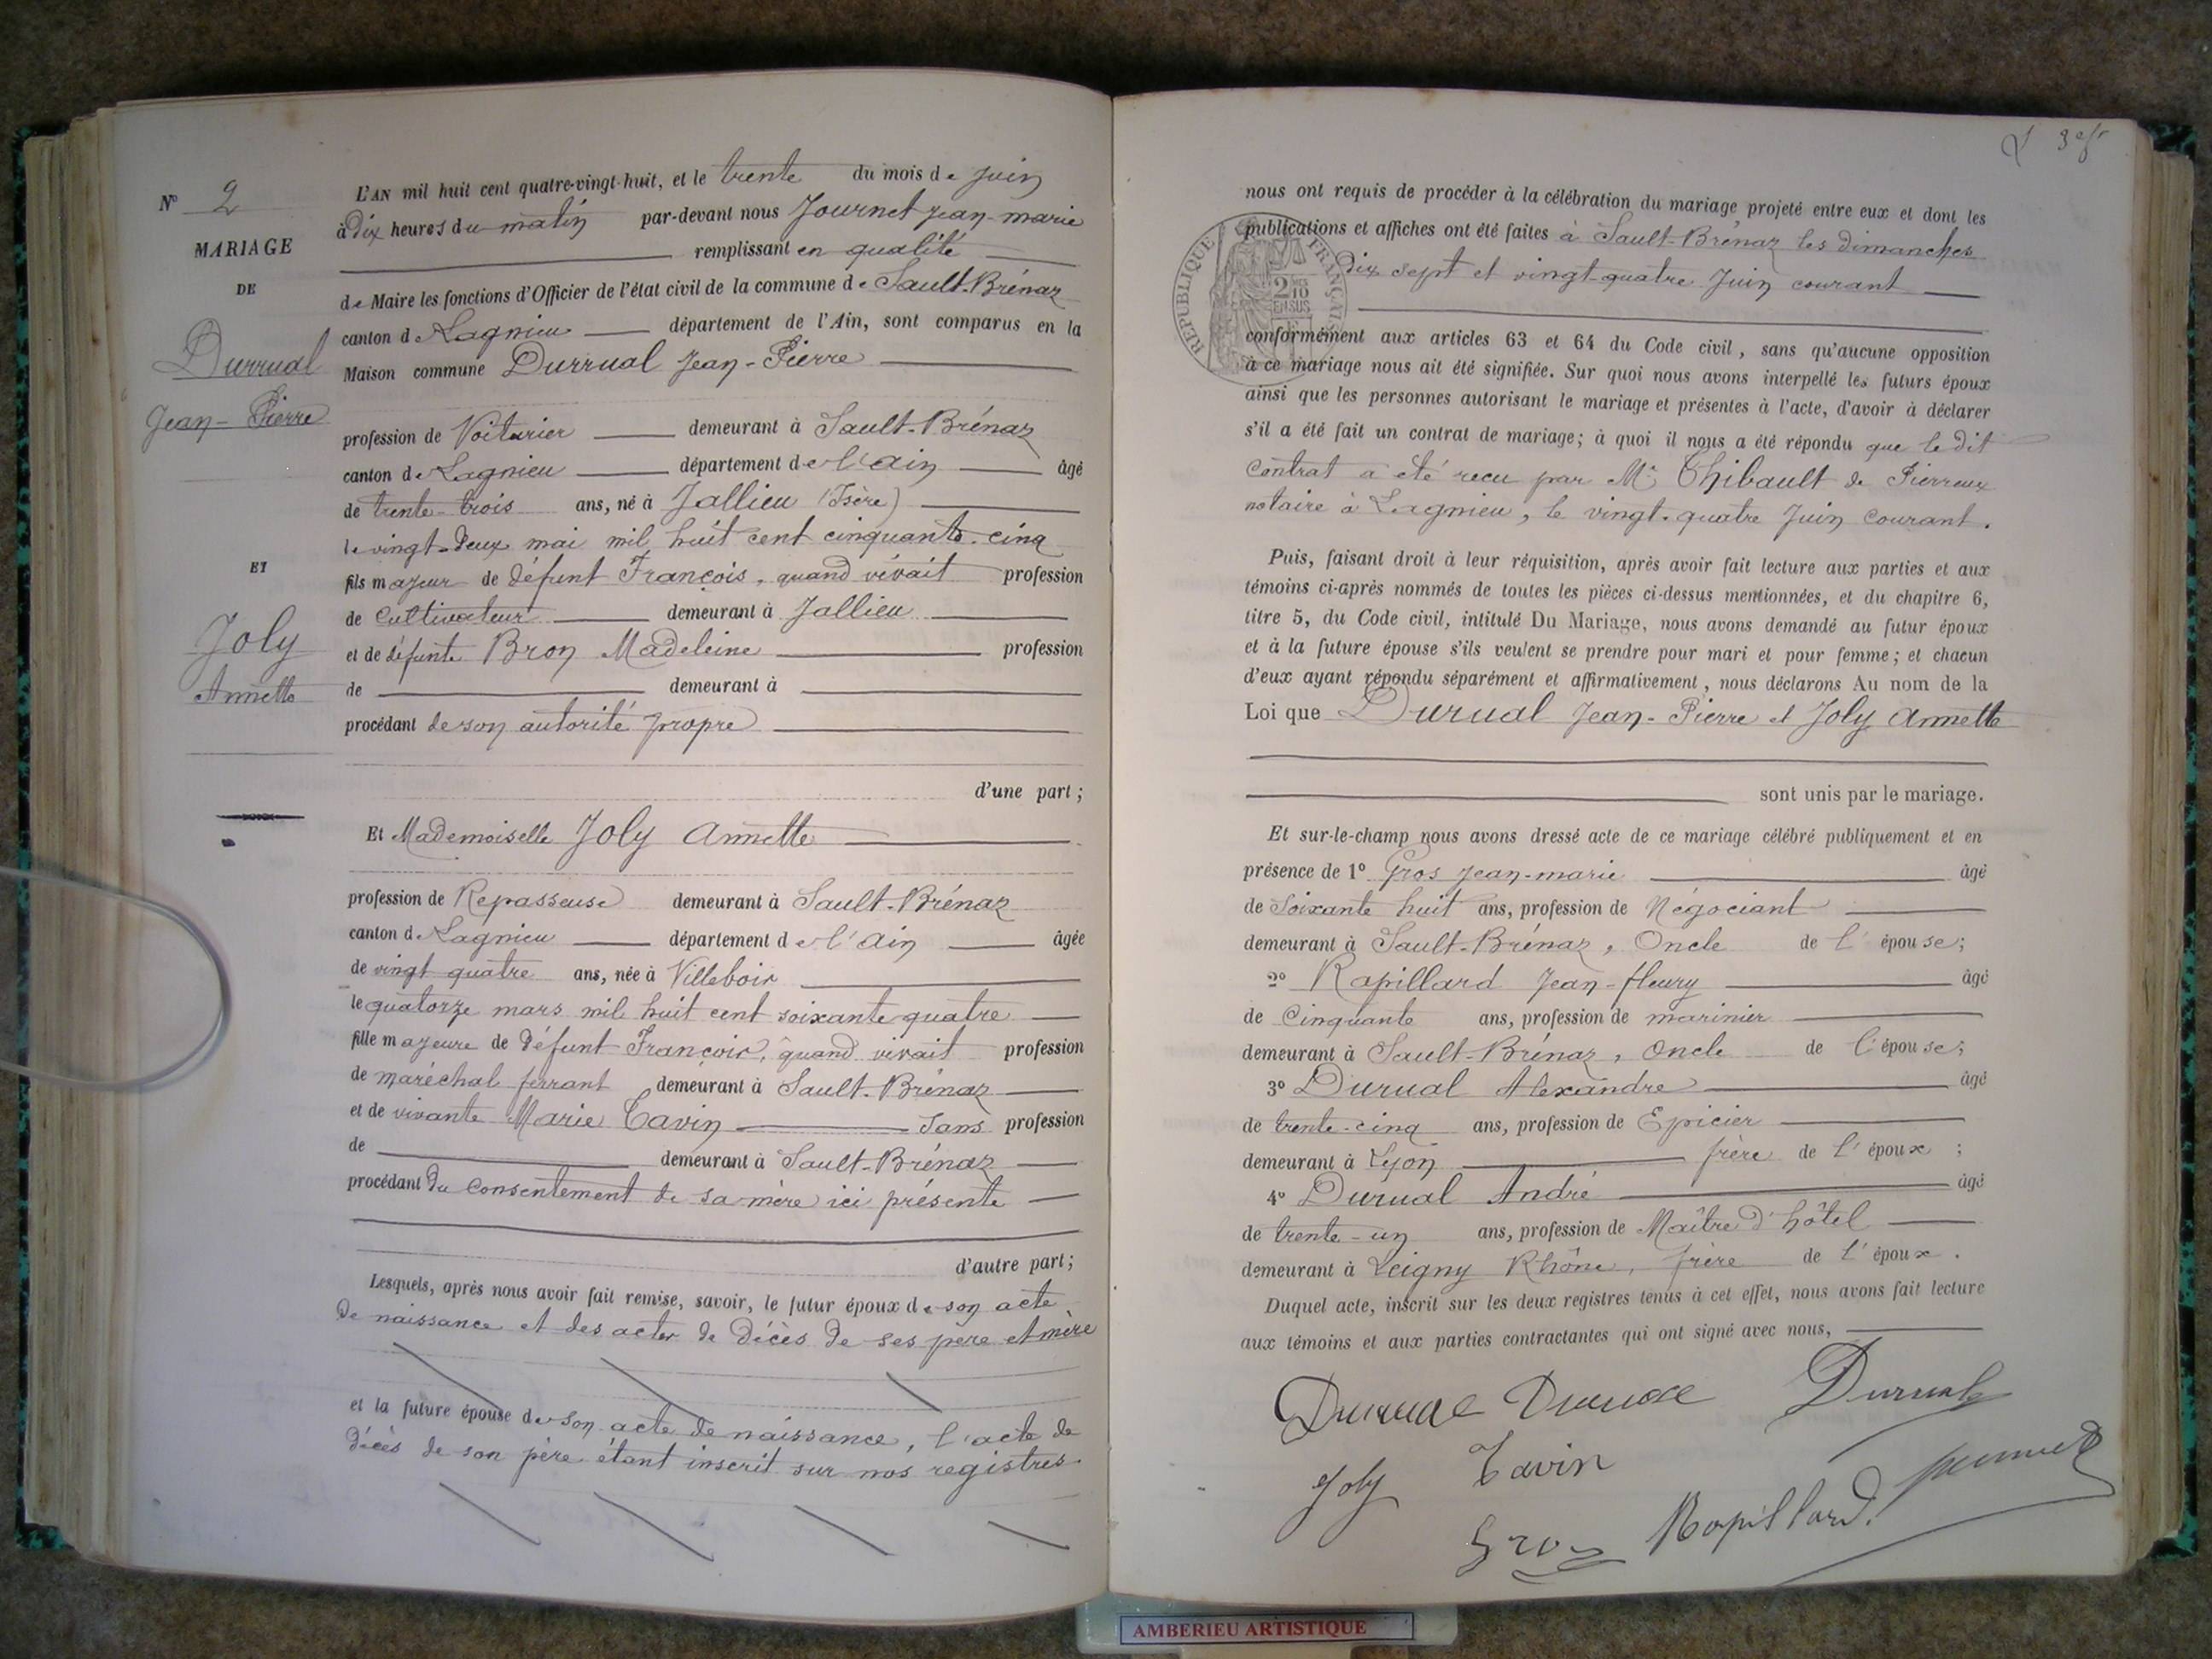 N° 2
MARIAGE
DE
Durrual
Jean-Pierre
ET
Joly
Annette
L'AN mil huit cent quatre-vingt-huit, et le trente du mois de Juin
à dix heures du matin par-devant nous Journet Jean-marie
remplissant en qualité
de Maire les fonctions d'Officier de l'état civil de la commune de Sault-Brénaz
canton de Lagnieu département de l'Ain, sont comparus en la
Maison commune Durrual Jean-Pierre
profession de Voiturier demeurant à Sault-Brénaz
canton de Lagnieu département de l'Ain âgé
de trente-trois ans, né à Jallieu (Isère)
le vingt-deux mai mil huit cent cinquante-cinq
fils majeur de défunt François, quand vivait profession
de Cultivateur demeurant à Jallieu
et de défunte Bron Madeleine profession
de demeurant à
procédant de son autorité propre
d'une part ;
Et Mademoiselle Joly Annette
profession de Repasseuse demeurant à Sault-Brénaz
canton de Lagnieu département de l'Ain âgée
de vingt quatre ans, née à Villebois
le quatorze mars mil huit cent soixante quatre
fille majeure de défunt François, quand vivait profession
de maréchal ferrant demeurant à Sault-Brénaz
et de vivante Marie Tavin Sans profession
de demeurant à Sault-Brénaz
procédant du consentement de sa mère ici présente
d'autre part ;
Lesquels, après nous avoir fait remise, savoir, le futur époux de son acte
de naissance et des actes de décès de ses père et mère
et la future épouse de son acte de naissance, l'acte de
décès de son père étant inscrit sur nos registres
nous ont requis de procéder à la célébration du mariage projeté entre eux et dont les
publications et affiches ont été faites à Sault-Brénaz les dimanches
dix sept et vingt-quatre Juin courant
REPUBLIQUE FRANÇAISE
2/10 EN SUS
conformément aux articles 63 et 64 du Code civil, sans qu'aucune opposition
à ce mariage nous ait été signifiée. Sur quoi nous avons interpellé les futurs époux
ainsi que les personnes autorisant le mariage et présentes à l'acte, d'avoir à déclarer
s'il a été fait un contrat de mariage ; à quoi il nous a été répondu que le dit
Contrat a été reçu par Me Thibault de Pierreux
notaire à Lagnieu, le vingt-quatre Juin courant.
Puis, faisant droit à leur réquisition, après avoir fait lecture aux parties et aux
témoins ci-après nommés de toutes les pièces ci-dessus mentionnées, et du chapitre 6,
titre 5, du Code civil, intitulé Du Mariage, nous avons demandé au futur époux
et à la future épouse s'ils veulent se prendre pour mari et pour femme ; et chacun
d'eux ayant répondu séparément et affirmativement, nous déclarons Au nom de la
Loi que Durual Jean-Pierre et Joly Annette
sont unis par le mariage.
Et sur-le-champ nous avons dressé acte de ce mariage célébré publiquement et en
présence de 1° Gros Jean-marie âgé
de Soixante huit ans, profession de Négociant
demeurant à Sault-Brénaz, Oncle de l'épouse ;
2° Rapillard Jean-fleury âgé
de Cinquante ans, profession de marinier
demeurant à Sault-Brénaz, Oncle de l'épouse ;
3° Durual Alexandre âgé
de trente-cinq ans, profession de Epicier
demeurant à Lyon frère de l'époux ;
4° Durual André âgé
de trente-un ans, profession de Maître d'hôtel
demeurant à Leigny Rhône, frère de l'époux.
Duquel acte, inscrit sur les deux registres tenus à cet effet, nous avons fait lecture
aux témoins et aux parties contractantes qui ont signé avec nous,
Durual Durual Durual
Joly Tavin
Gros Rapillard Journet
AMBERIEU ARTISTIQUE